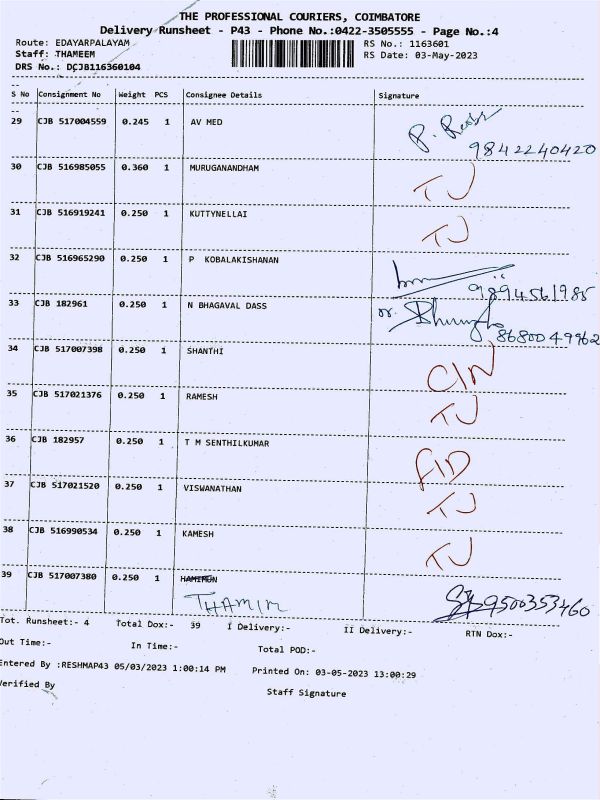 THE PROFESSIONAL COURIERS, COIMBATORE
Delivery Runsheet - P43 - Phone No.:0422-3505555 - Page No.:4
Route: EDAYARPALAYAM
RS No.: 1163601
Staff: THAMEEM
RS Date: 03-May-2023
DRS No.: DCJB116360104
S No Consignment No Weight PCS Consignee Details Signature
29 CJB 517004559 0.245 1 AV MED
9842240420
30 CJB 516985055 0.360 1 MURUGANANDHAM TJ
31 CJB 516919241 0.250 1 KUTTYNELLAI TJ
32 CJB 516965290 0.250 1 P KOBALAKISHANAN
9894561985
33 CJB 182961 0.250 1 N BHAGAVAL DASS
8680049962
34 CJB 517007398 0.250 1 SHANTHI CIN
35 CJB 517021376 0.250 1 RAMESH TJ
36 CJB 182957 0.250 1 T M SENTHILKUMAR FID
37 CJB 517021520 0.250 1 VISWANATHAN TJ
38 CJB 516990534 0.250 1 KAMESH TJ
39 CJB 517007380 0.250 1 HAMIMUN
THAMIM 9500353460
Tot. Runsheet:- 4 Total Dox:- 39 I Delivery:- II Delivery:- RTN Dox:-
Out Time:- In Time:- Total POD:-
Entered By :RESHMAP43 05/03/2023 1:00:14 PM Printed On: 03-05-2023 13:00:29
Verified By Staff Signature